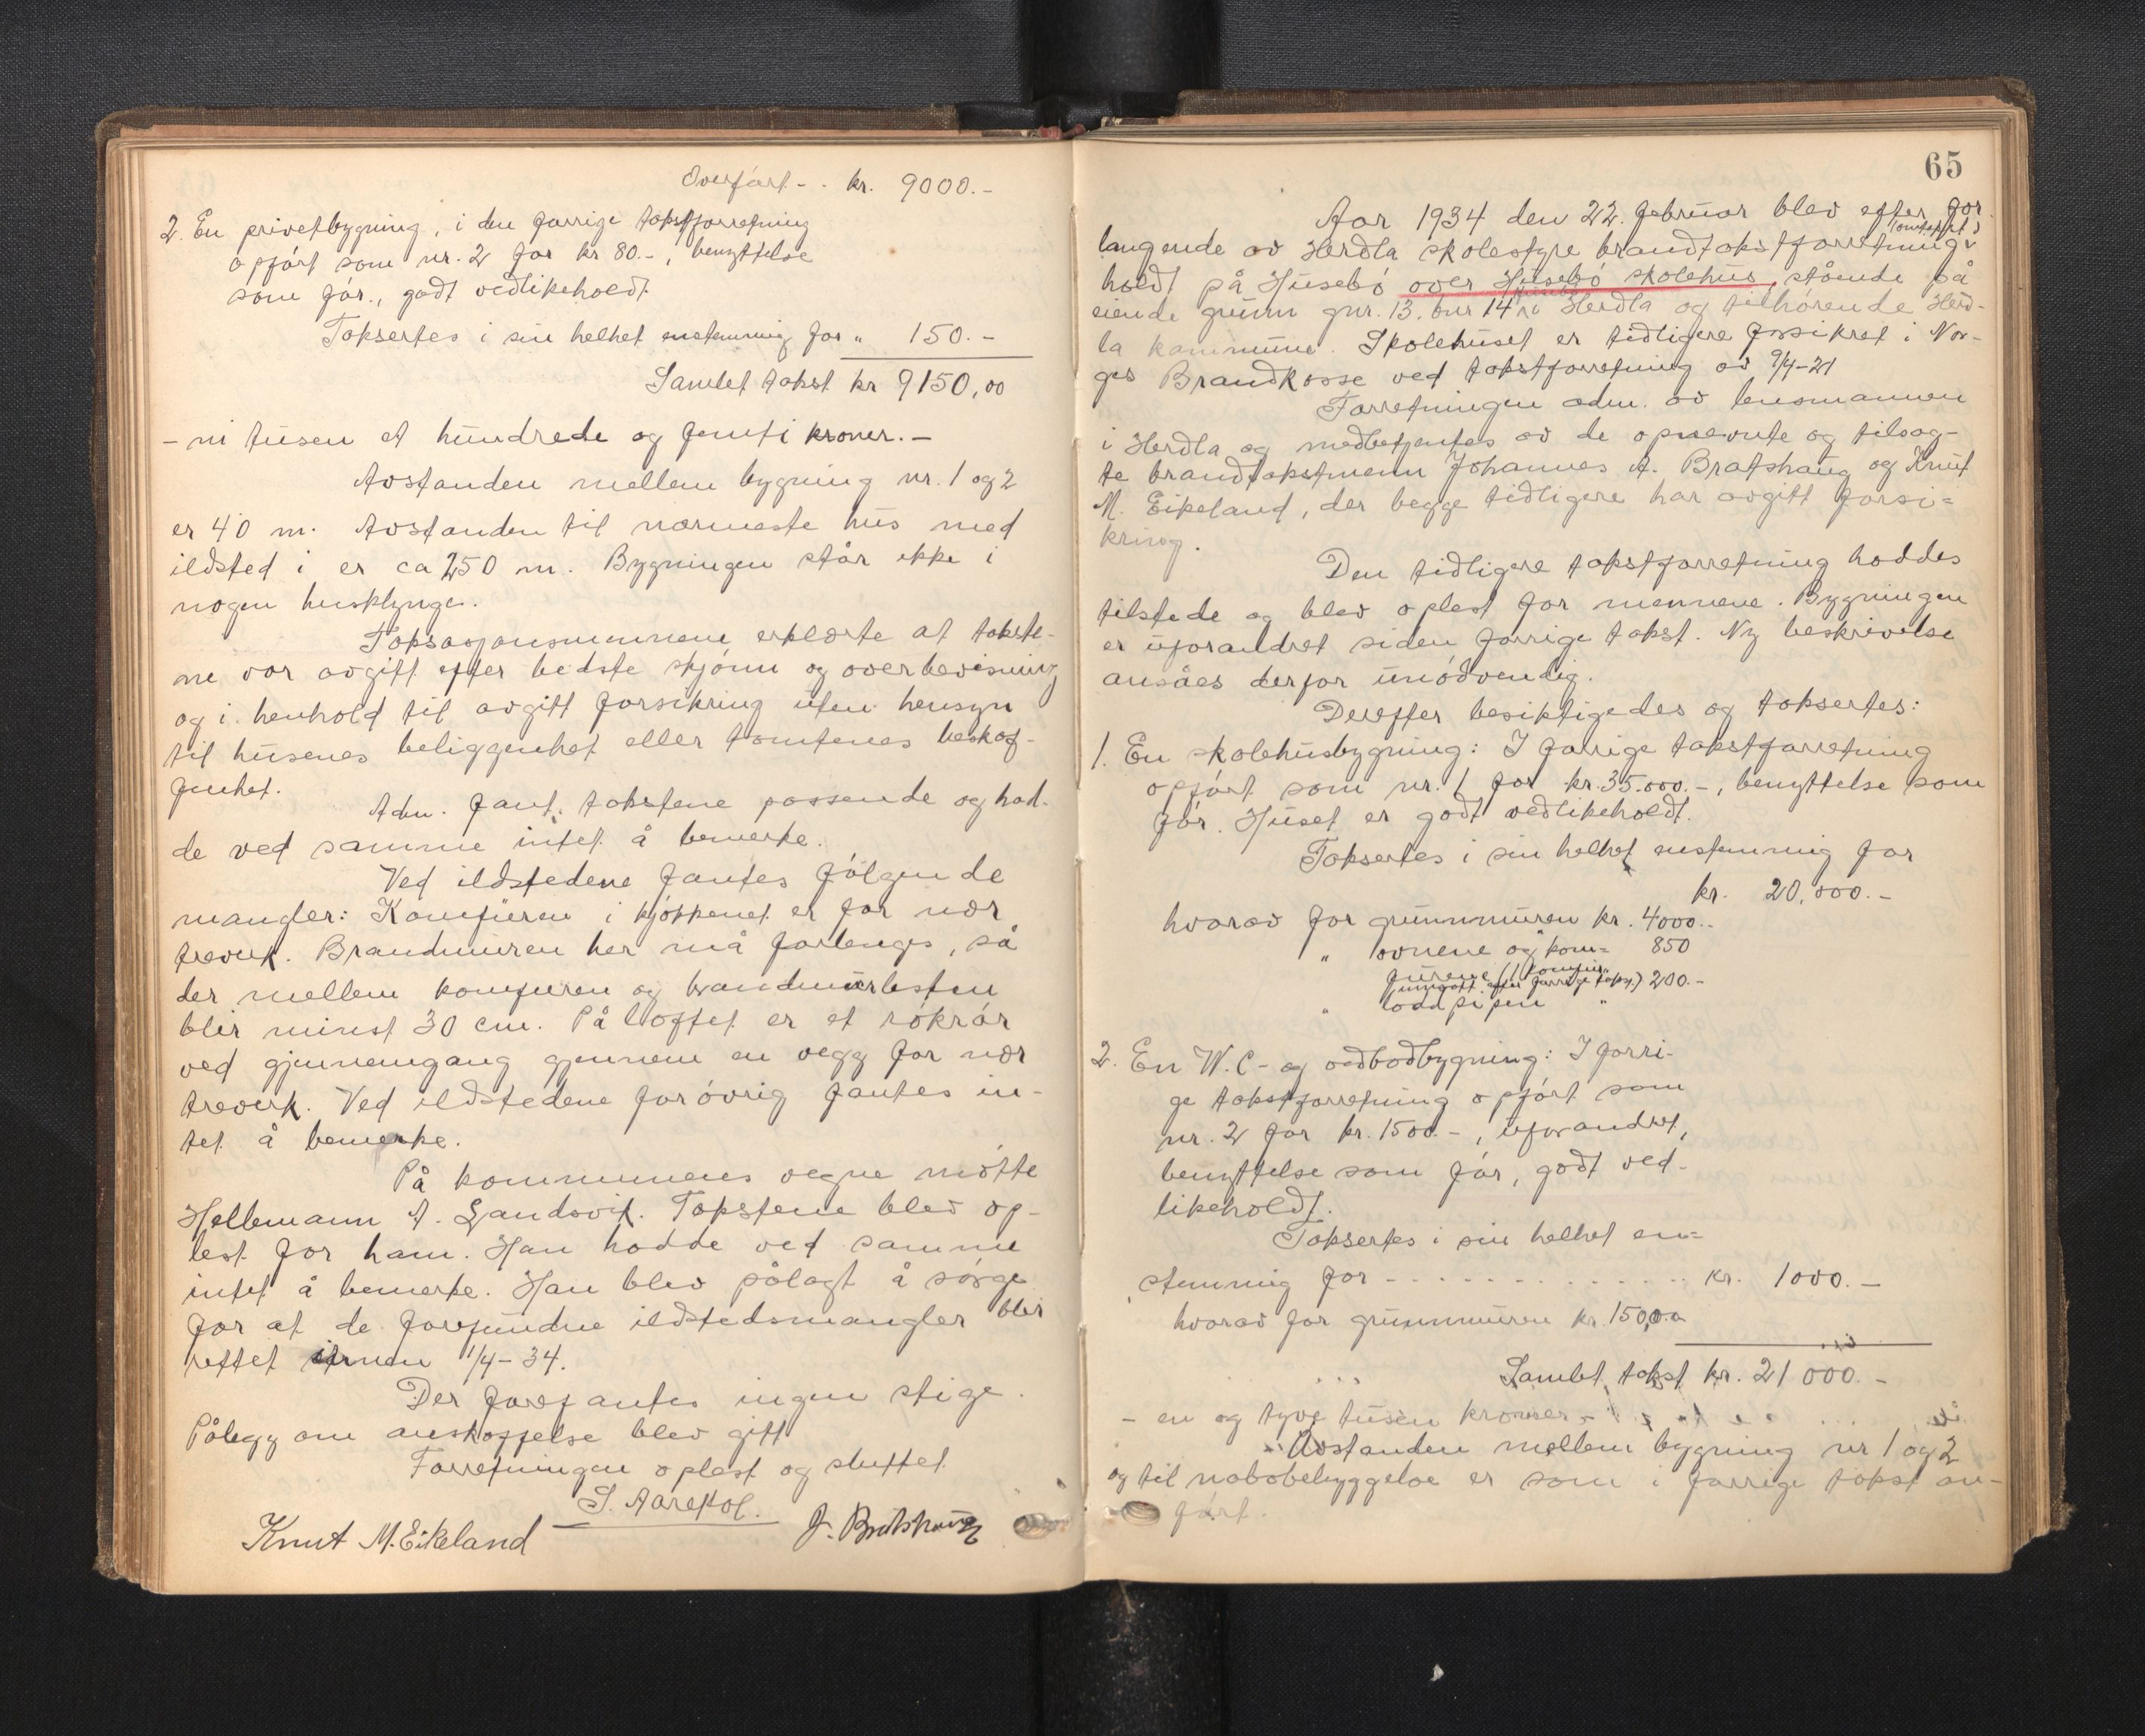 Overført - . kr. 9000.-
2. En privetbygning, i den forrige takstforretning
opført som nr. 2 for kr 80.-, benyttelse
som før., godt vedlikeholdt.
Taksertes i sin helhet enstemmig for " 150.-
Samlet takst kr 9150,00
- ni tusen et hundrede og femti kroner.-
Avstanden mellem bygning nr. 1 og 2
er 40 m. Avstanden til nærmeste hus med
ildsted i er ca 250 m. Bygningen står ikke i
nogen husklynge.
Taksasjonsmennene erklærte at takste-
ne var avgitt efter bedste skjønn og overbevisning
og i henhold til avgitt forsikring uten hensyn
til husenes beliggenhet eller tomtenes beskaf-
fenhet.
Adm. fant takstene passende og had-
de ved samme intet å bemerke.
Ved ildstedene fantes følgende
mangler: Komfuren i kjøkkenet er for nær
treverk. Brandmuren her må forlenges, så
der mellem komfuren og brandmurlisten
blir minst 30 cm. På loftet er et røkrør
ved gjennemgang gjennem en vegg for nær
treverk. Ved ildstedene forøvrig fantes in-
tet å bemerke.
På kommunens vegne møtte
Hellemann A. Landsvik. Takstene blev op-
lest for ham. Han hadde ved samme
intet å bemerke. Han blev pålagt å sørge
for at de forefundne ildstedsmangler blir
rettet innen 1/4-34.
Der forefantes ingen stige.
Pålegg om anskaffelse blev gitt
Forretningen oplest og sluttet.
S. Aarekol.
Knut M. Eikeland J. Bratshaug
65
Aar 1934 den 22. februar blev efter for
langende av Herdla skolestyre brandtakstforretning (omtakst)
holdt på Husebø over Husebø skolehus, stående på
eiende grunn gnr. 13. bnr 14 Husebø i Herdla og tilhørende Herd-
la kommune. Skolehuset er tidligere forsikret i Nor-
ges Brandkasse ved takstforretning av 9/4-21
Forretningen adm. av lensmannen
i Herdla og medbetjentes av de opnevnte og tilsag-
te brandtakstmenn Johannes A. Bratshaug og Knut
M. Eikeland, der begge tidligere har avgitt forsi=
kring.
Den tidligere takstforretning haddes
tilstede og blev oplest for mennene. Bygningen
er uforandret siden forrige takst. Ny beskrivelse
ansåes derfor unødvendig.
Derefter besiktigedes og taksertes:
1. En skolehusbygning: I forrige takstforretning
opført som nr. 1 for kr. 35.000.-, benyttelse som
før. Huset er godt vedlikeholdt.
Taksertes i sin helhet enstemmig for
kr. 20,000.-
hvorav for grunnmuren kr. 4000.-
" ovnene og kom= 850
furene (1 komfur
inngått efter forrige takst) 200.-
" loddpipen "
2. En W.C- og vedbodbygning: I forri-
ge takstforretning opført som
nr. 2 for kr. 1500.-, uforandret,
benyttelse som før, godt ved-
likeholdt.
Taksertes i sin helhet en=
stemmig for - - - - - - - - - - - kr. 1000.-
hvorav for grunnmuren kr. 150,00
Samlet takst kr. 21 000.-
- en og tyve tusen kroner -
Avstanden mellem bygning nr 1 og 2
og til nabobebyggelse er som i forrige takst an-
ført.